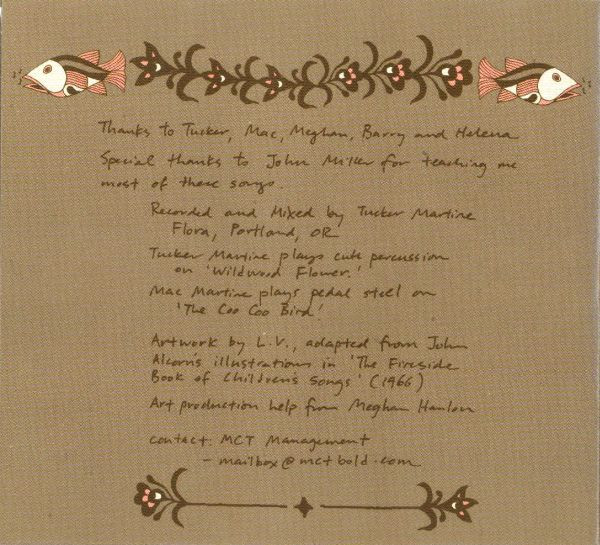 Thanks to Tucker, Mac, Meghan, Barry and Helena
Special thanks to John Miller for teaching me
most of these songs.
Recorded and Mixed by Tucker Martine
Flora, Portland, OR
Tucker Martine plays cute percussion
on 'Wildwood Flower.'
Mac Martine plays pedal steel on
'The Coo Coo Bird.'
Artwork by L.V., adapted from John
Alcorn's illustrations in 'The Fireside
Book of Children's Songs' (1966)
Art production help from Meghan Hanlon
contact: MCT Management
- mailbox@mctbold.com